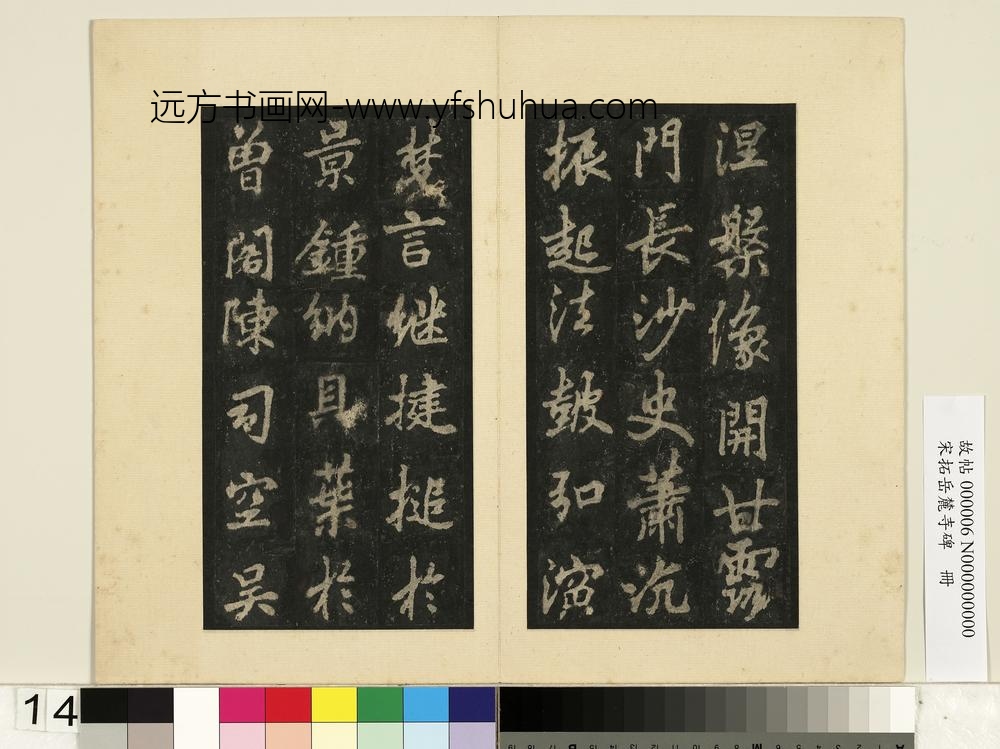 远方书画网-www.yfshuhua.com
涅槃像開甘露
門長沙史蕭沆
振起法皷弘演
梵言継揵搥於
景鍾納具葉於
曾閣陳司空吳
故帖 000006 N000000000
宋拓岳麓寺碑 冊
14